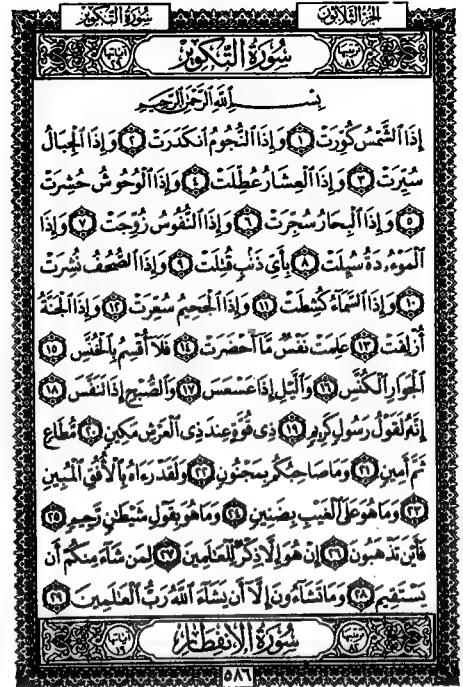 سُورَةُ التَّكْوِيرِ الجُزْءُ الثَّلَاثُونَ
سُورَةُ التَّكْوِيرِ
بِسْمِ ٱللَّهِ ٱلرَّحْمَٰنِ ٱلرَّحِيمِ
إِذَا ٱلشَّمْسُ كُوِّرَتْ ١ وَإِذَا ٱلنُّجُومُ ٱنكَدَرَتْ ٢ وَإِذَا ٱلْجِبَالُ
سُيِّرَتْ ٣ وَإِذَا ٱلْعِشَارُ عُطِّلَتْ ٤ وَإِذَا ٱلْوُحُوشُ حُشِرَتْ
٥ وَإِذَا ٱلْبِحَارُ سُجِّرَتْ ٦ وَإِذَا ٱلنُّفُوسُ زُوِّجَتْ ٧ وَإِذَا
ٱلْمَوْءُۥدَةُ سُئِلَتْ ٨ بِأَيِّ ذَنۢبٍ قُتِلَتْ ٩ وَإِذَا ٱلصُّحُفُ نُشِرَتْ
١٠ وَإِذَا ٱلسَّمَآءُ كُشِطَتْ ١١ وَإِذَا ٱلْجَحِيمُ سُعِّرَتْ ١٢ وَإِذَا ٱلْجَنَّةُ
أُزْلِفَتْ ١٣ عَلِمَتْ نَفْسٌ مَّآ أَحْضَرَتْ ١٤ فَلَآ أُقْسِمُ بِٱلْخُنَّسِ ١٥
ٱلْجَوَارِ ٱلْكُنَّسِ ١٦ وَٱلَّيْلِ إِذَا عَسْعَسَ ١٧ وَٱلصُّبْحِ إِذَا تَنَفَّسَ ١٨
إِنَّهُۥ لَقَوْلُ رَسُولٍ كَرِيمٍ ١٩ ذِي قُوَّةٍ عِندَ ذِي ٱلْعَرْشِ مَكِينٍ ٢٠ مُّطَاعٍ
ثَمَّ أَمِينٍ ٢١ وَمَا صَاحِبُكُم بِمَجْنُونٍ ٢٢ وَلَقَدْ رَءَاهُ بِٱلْأُفُقِ ٱلْمُبِينِ
٢٣ وَمَا هُوَ عَلَى ٱلْغَيْبِ بِضَنِينٍ ٢٤ وَمَا هُوَ بِقَوْلِ شَيْطَٰنٍ رَّجِيمٍ ٢٥
فَأَيْنَ تَذْهَبُونَ ٢٦ إِنْ هُوَ إِلَّا ذِكْرٌ لِّلْعَٰلَمِينَ ٢٧ لِمَن شَآءَ مِنكُمْ أَن
يَسْتَقِيمَ ٢٨ وَمَا تَشَآءُونَ إِلَّآ أَن يَشَآءَ ٱللَّهُ رَبُّ ٱلْعَٰلَمِينَ ٢٩
سُورَةُ الِانفِطَارِ
٥٨٦